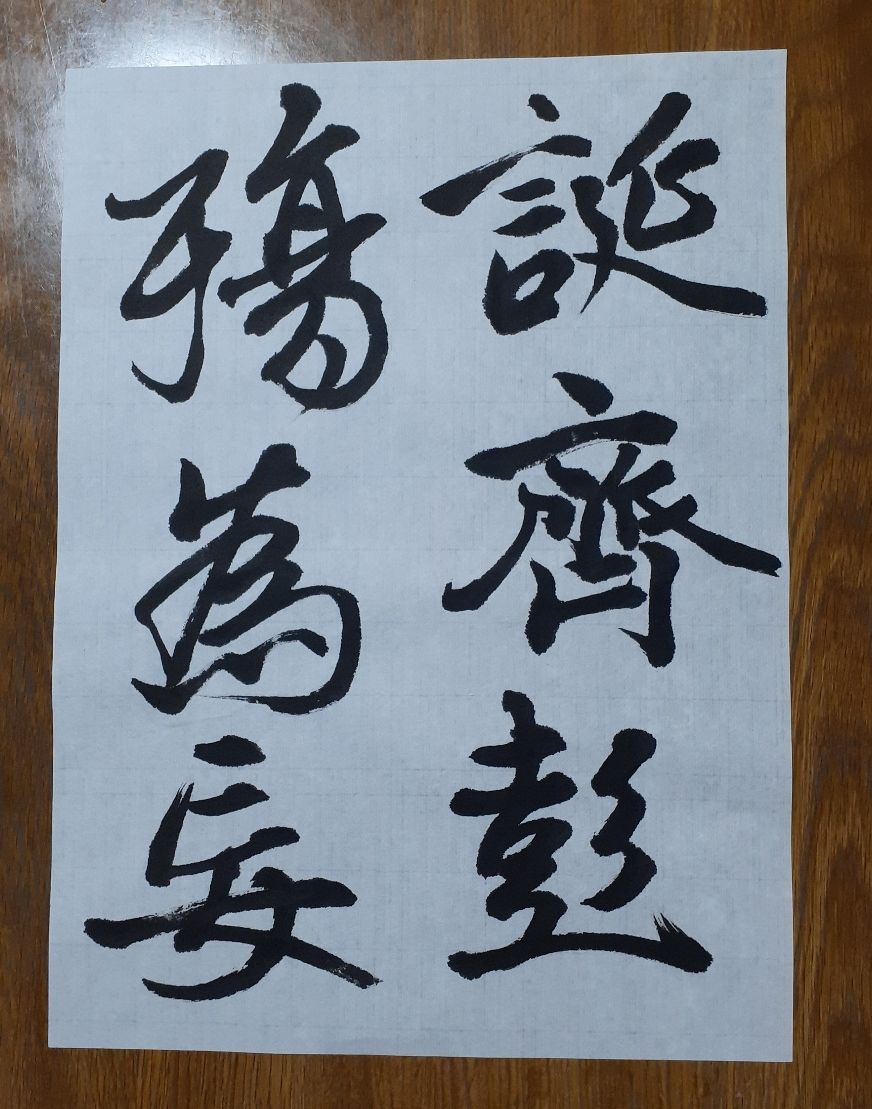 誕齊彭
殤為妄